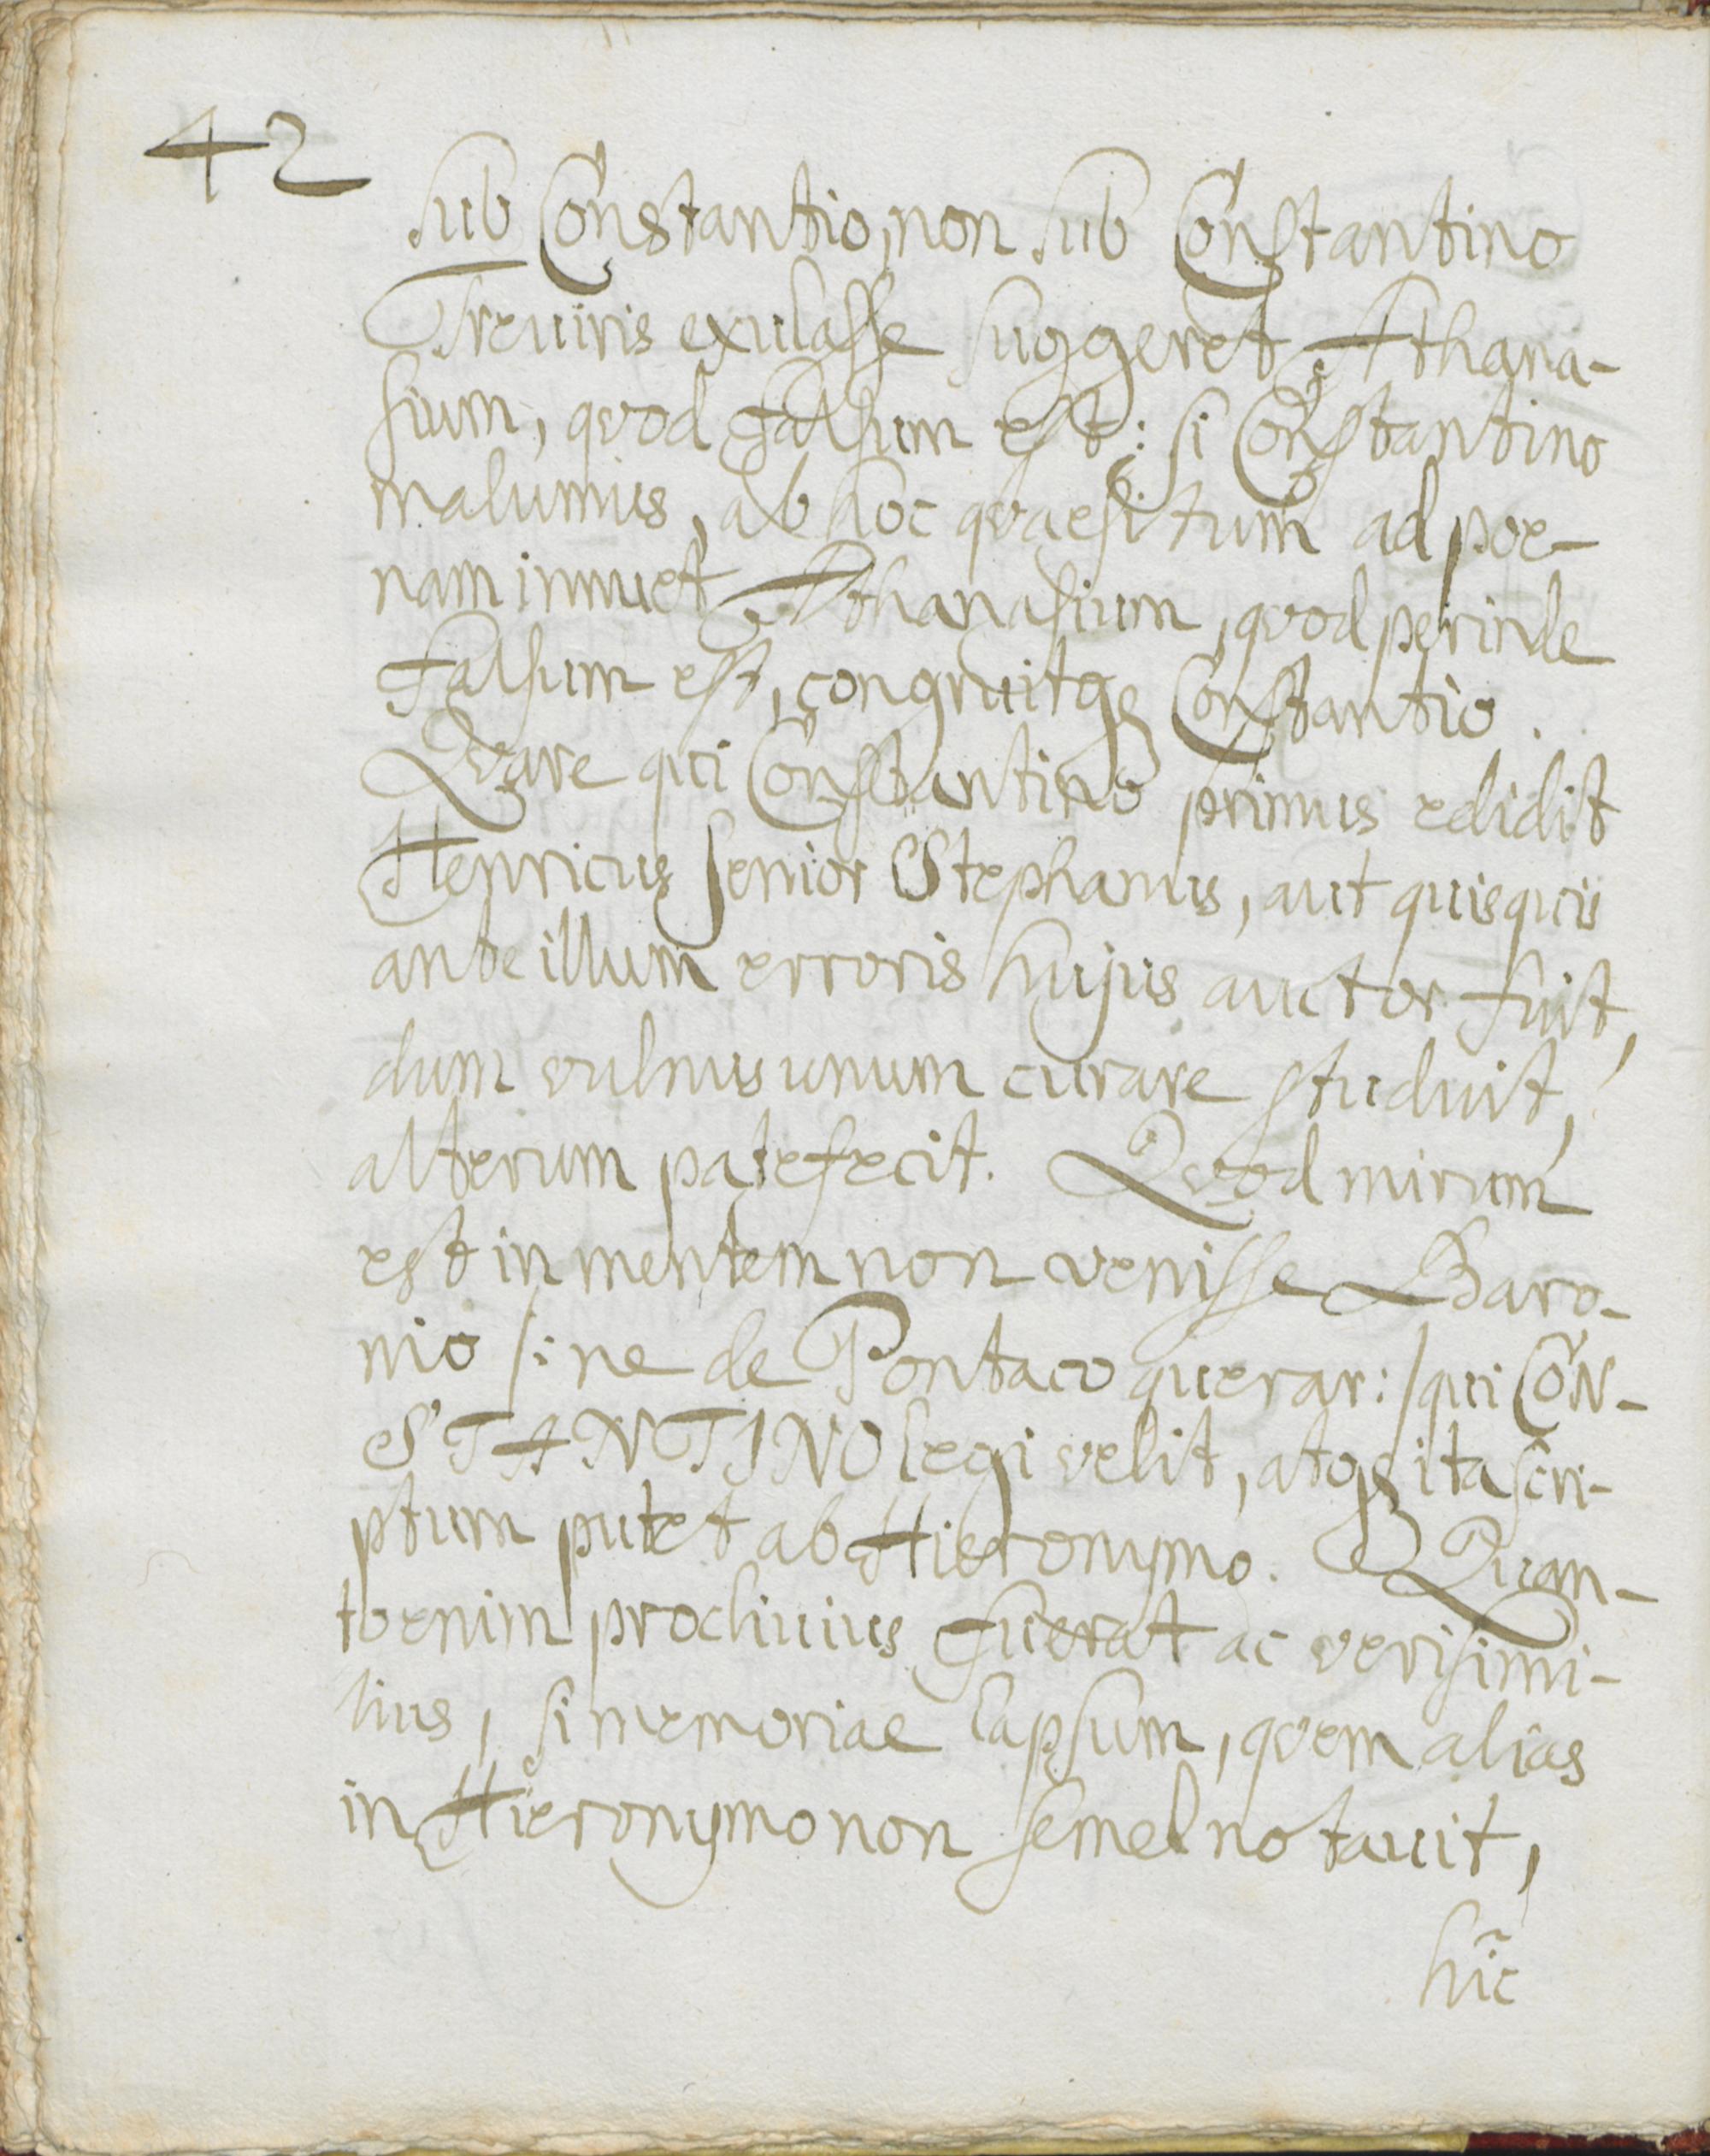 42
sub Constantio, non sub Constantino
Treuiris exulasse suggeret Athana-
sium, qvod falsum est: si Constantino
malumus, ab hoc qvaesitum ad poe-
nam innuet Athanasium, qvod perinde
falsum est, congruitqꝫ Constantio.
Qvare qui Constantino primus edidit
Henricus senior Stephanus, aut quisquis
ante illum erroris hujus auctor fuit,
dum vulnus unum curare studuit,
alterum patefecit. Qvod mirum
est in mentem non venisse Baro-
nio /: ne de Pontaco querar :/ qui CON-
STANTINO legi velit, atqꝫ ita scri-
ptum putet ab Hieronymo. Quan-
to enim procliuius fuerat ac verisimi-
lius, si memoriae lapsum, qvem aliàs
in Hieronymo non semel notauit,
hîc